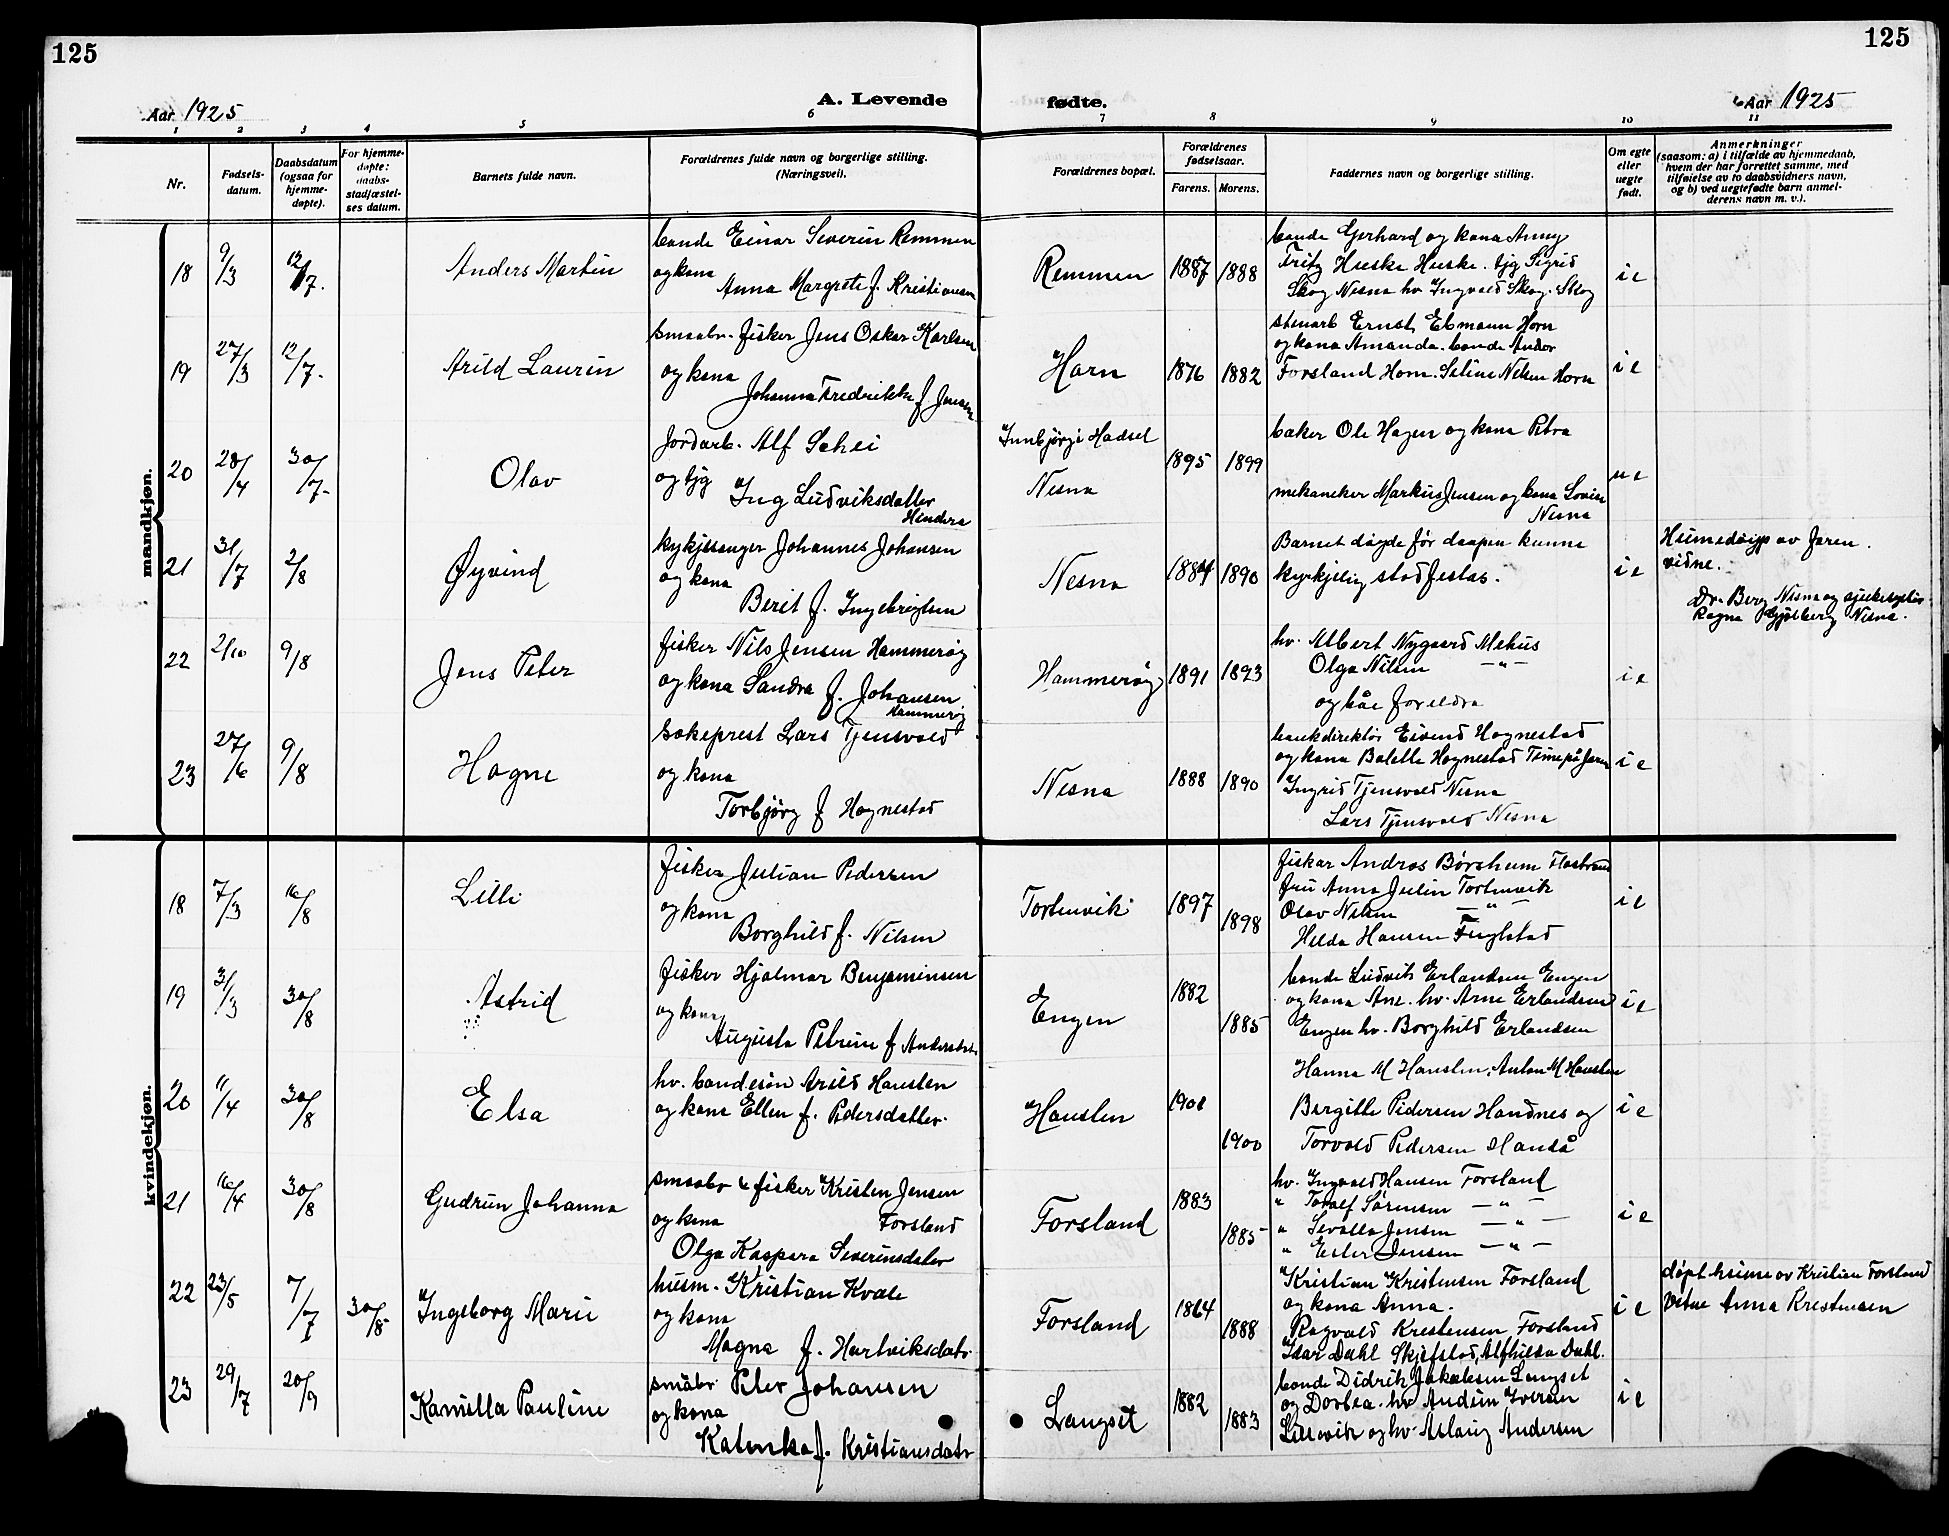 125
125
Aar 1925
A. Levende
fødte.
Aar 1925
1 2 3 4 5 6 7 8 9 10 11
Nr.
Fødsels-
datum.
Daabsdatum
(ogsaa for
hjemme-
døpte).
For hjemme-
døpte:
daabs-
stadfæstel-
ses datum.
Barnets fulde navn.
Forældrenes fulde navn og borgerlige stilling.
(Næringsvei).
Forældrenes bopæl.
Forældrenes
fødselsaar.
Farens. Morens.
Faddernes navn og borgerlige stilling.
Om egte
eller
uegte
født.
Anmerkninger
(saasom: a) i tilfælde av hjemmedaab,
hvem der har forrettet samme, med
tilføielse av to daabsvidners navn,
og b) ved uegtefødte barn anmel-
derens navn m. v.).
mandkjøn.
18 9/3 12/7. Anders Martin
bonde Einar Severin Remmen
og kona
Anna Margrete f. Kristiansen
Remmen 1887 1888
bonde Gerhard og kona Anny
Fritz Huske Huske. tjg Sigrid
Skog Nesna hv Ingvald Skog. Skog
i e
19 27/3 12/7. Arild Laurin
smaabr. fisker Jens Oskar Karlsen
og kona
Johanna Fredrikke f. Jensen
Horn 1876 1882
Ernst Ebmann Horn
og kona Amanda. bonde Andor
Forsland Horn. Seline Nilsen Horn
i e
20 28/4 30/7- Olav
Jordarb. Alf Schei
og tjg
Ing Ludviksdatter
Hindera
Innbjørg i Hadsel
Nesna
1895 1899
baker Ole Hagen og kona Petra
mekaneker Markus Jensen og kona Lovise
Nesna
u e
21 31/7 2/8 Øyvind
kykjesanger Johannes Johansen
og kona
Berit f. Ingebrigtsen
Nesna 1884 1890
Barnet døyde før daapen kunne
kyrkjelig stadfestas.
i e
Heimedøypt av faren.
vidne.
Dr. Berg Nesna og
Ragna Nesna.
22 2/10 9/8 Jens Peter
fisker Nils Jensen Hammerøy
og kona Sandra f. Johansen
Hammerøy
Hammerøy 1891 1893
hv. Albert Nygaard Mehus
Olga Nilsen — " —
og båe foreldra
i e
23 27/6 9/8 Hogne
Sokeprest Lars Tjensvold
og kona
Torbjørg f Hognestad
Nesna 1888 1890
bankdirektør Eivend Hognestad
og kona Bolette Hognestad Time på Jaren
Ingrid Tjensvold Nesna
Lars Tjensvold Nesna
i e
kvindekjøn.
18 7/3 16/8 Lilli
fisker Julian Pedersen
og kona
Borghild f. Nilsen
Tortenvik 1897 1898
fiskar Andras Børsheim Flostrand
fru Anna Julin Tortenvik
Olav Nilsen — " —
Helda Hansen Fuglstad
i e
19 31/3 30/8 Astrid
fisker Hjalmar Benjaminsen
og kona
Augusta Petrine f Andersdatr
Engen 1882 1885
bonde Ludvik Erlandsen Engen
og kona Ane. hv. Arne Erlandsen
Engen hv. Borghild Erlandsen
i e
20 11/4 30/8 Elsa
hv. bondesøn Arild Hanslen
og kona Ellen f. Pedersdatter.
Hanslen 1901 1900
Hanna M Hanslen, Anton M Hanslen
Bergitte Pedersen Handnes og
Torvald Pedersen Handå
i e
21 16/4 30/8 Gudrun Johanna
smaabr & fisker Kristen Jensen
og kona Forsland
Olga Kaspara Severinsdatr
Forsland 1883 1885
hv. Ingvald Hansen Forsland
" Toralf Sørensen — " —
" Sevalla Jensen — " —
" Ester Jensen — " —
i e
22 23/5 7/7 30/8- Ingeborg Marie
husm. Kristian Kvale
og kona
Magna f. Hartviksdatr
Forsland 1864 1888
Kristian Kristensen Forsland
og kona Anna.
Ragvald Kristensen Forsland
Ivar Dahl Skjefstad, Alfhilda Dahl.
i e
døpt heime av Kristian Forsland
Vitne Anna Kristensen
23 29/7 20/9 Kamilla Pauline
småbr Peter Johansen
og kona
Katinka f. Kristiansdatr
Langset 1882 1883
bonde Didrik Jakobsen Langset
og Dortea. hv Andrin Iversen
Lillevik og hv Aslaug Andersen
i e